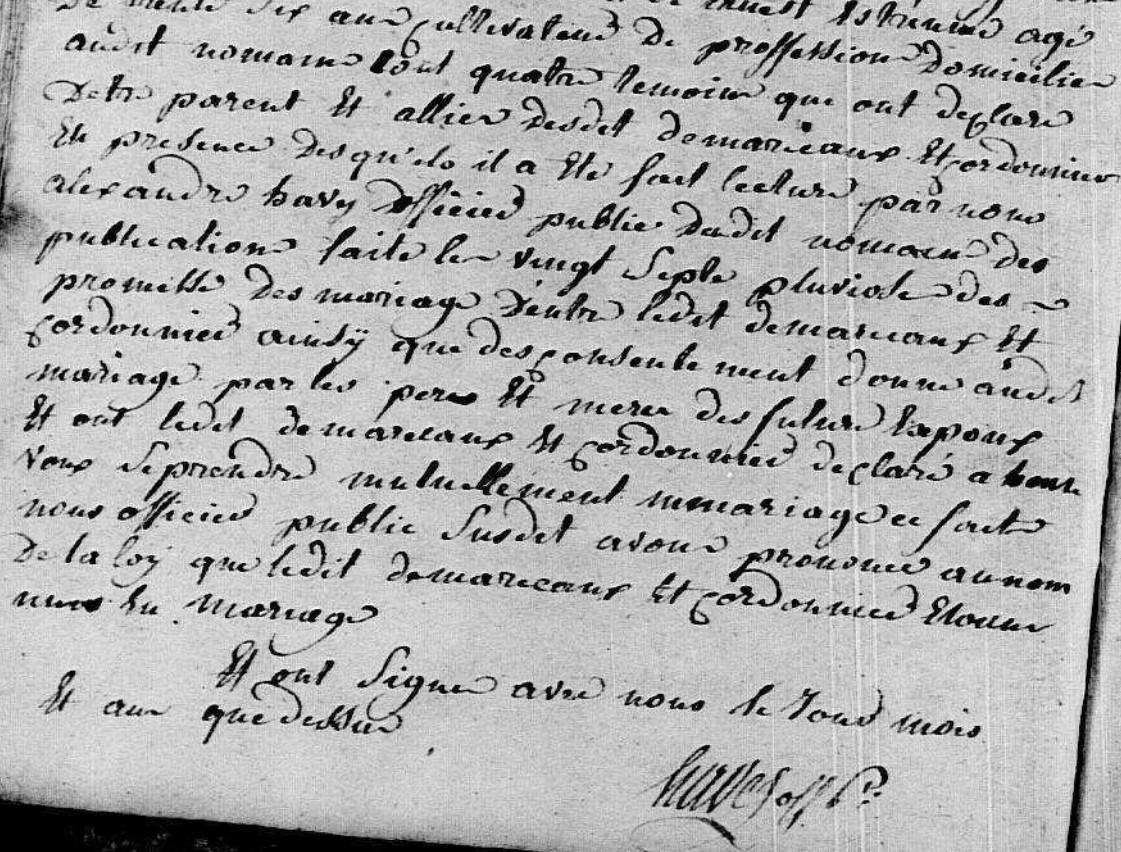 De trente six ans Cultivateur De proffession Domicilier
audit nomain tout quatre temoins que ont declare
Detre parent Et allier desdit demarecaux Et Cordonnier
En presence desquels il a Ete fait lecture par nous
alexandre havez officier public dudit nomain des
publications faite le vingt Septe pluviose des
promesse Des mariage D'entre ledit demarecaux Et
Cordonnier ainsy que des consentement donne audit
mariage par les pere Et mere des futurs Epoux
Et ont ledit demarecaux Et Cordonnier declaré a haute
voix Se prendre mutuellement mmariage ce fait
nous officier public Susdit avons prononce au nom
De la loy que ledit demarecaux Et Cordonnier Etoient
unis En mariage
Et ont Signer avec nous le Jour mois
Et an que dessus
havez off p.